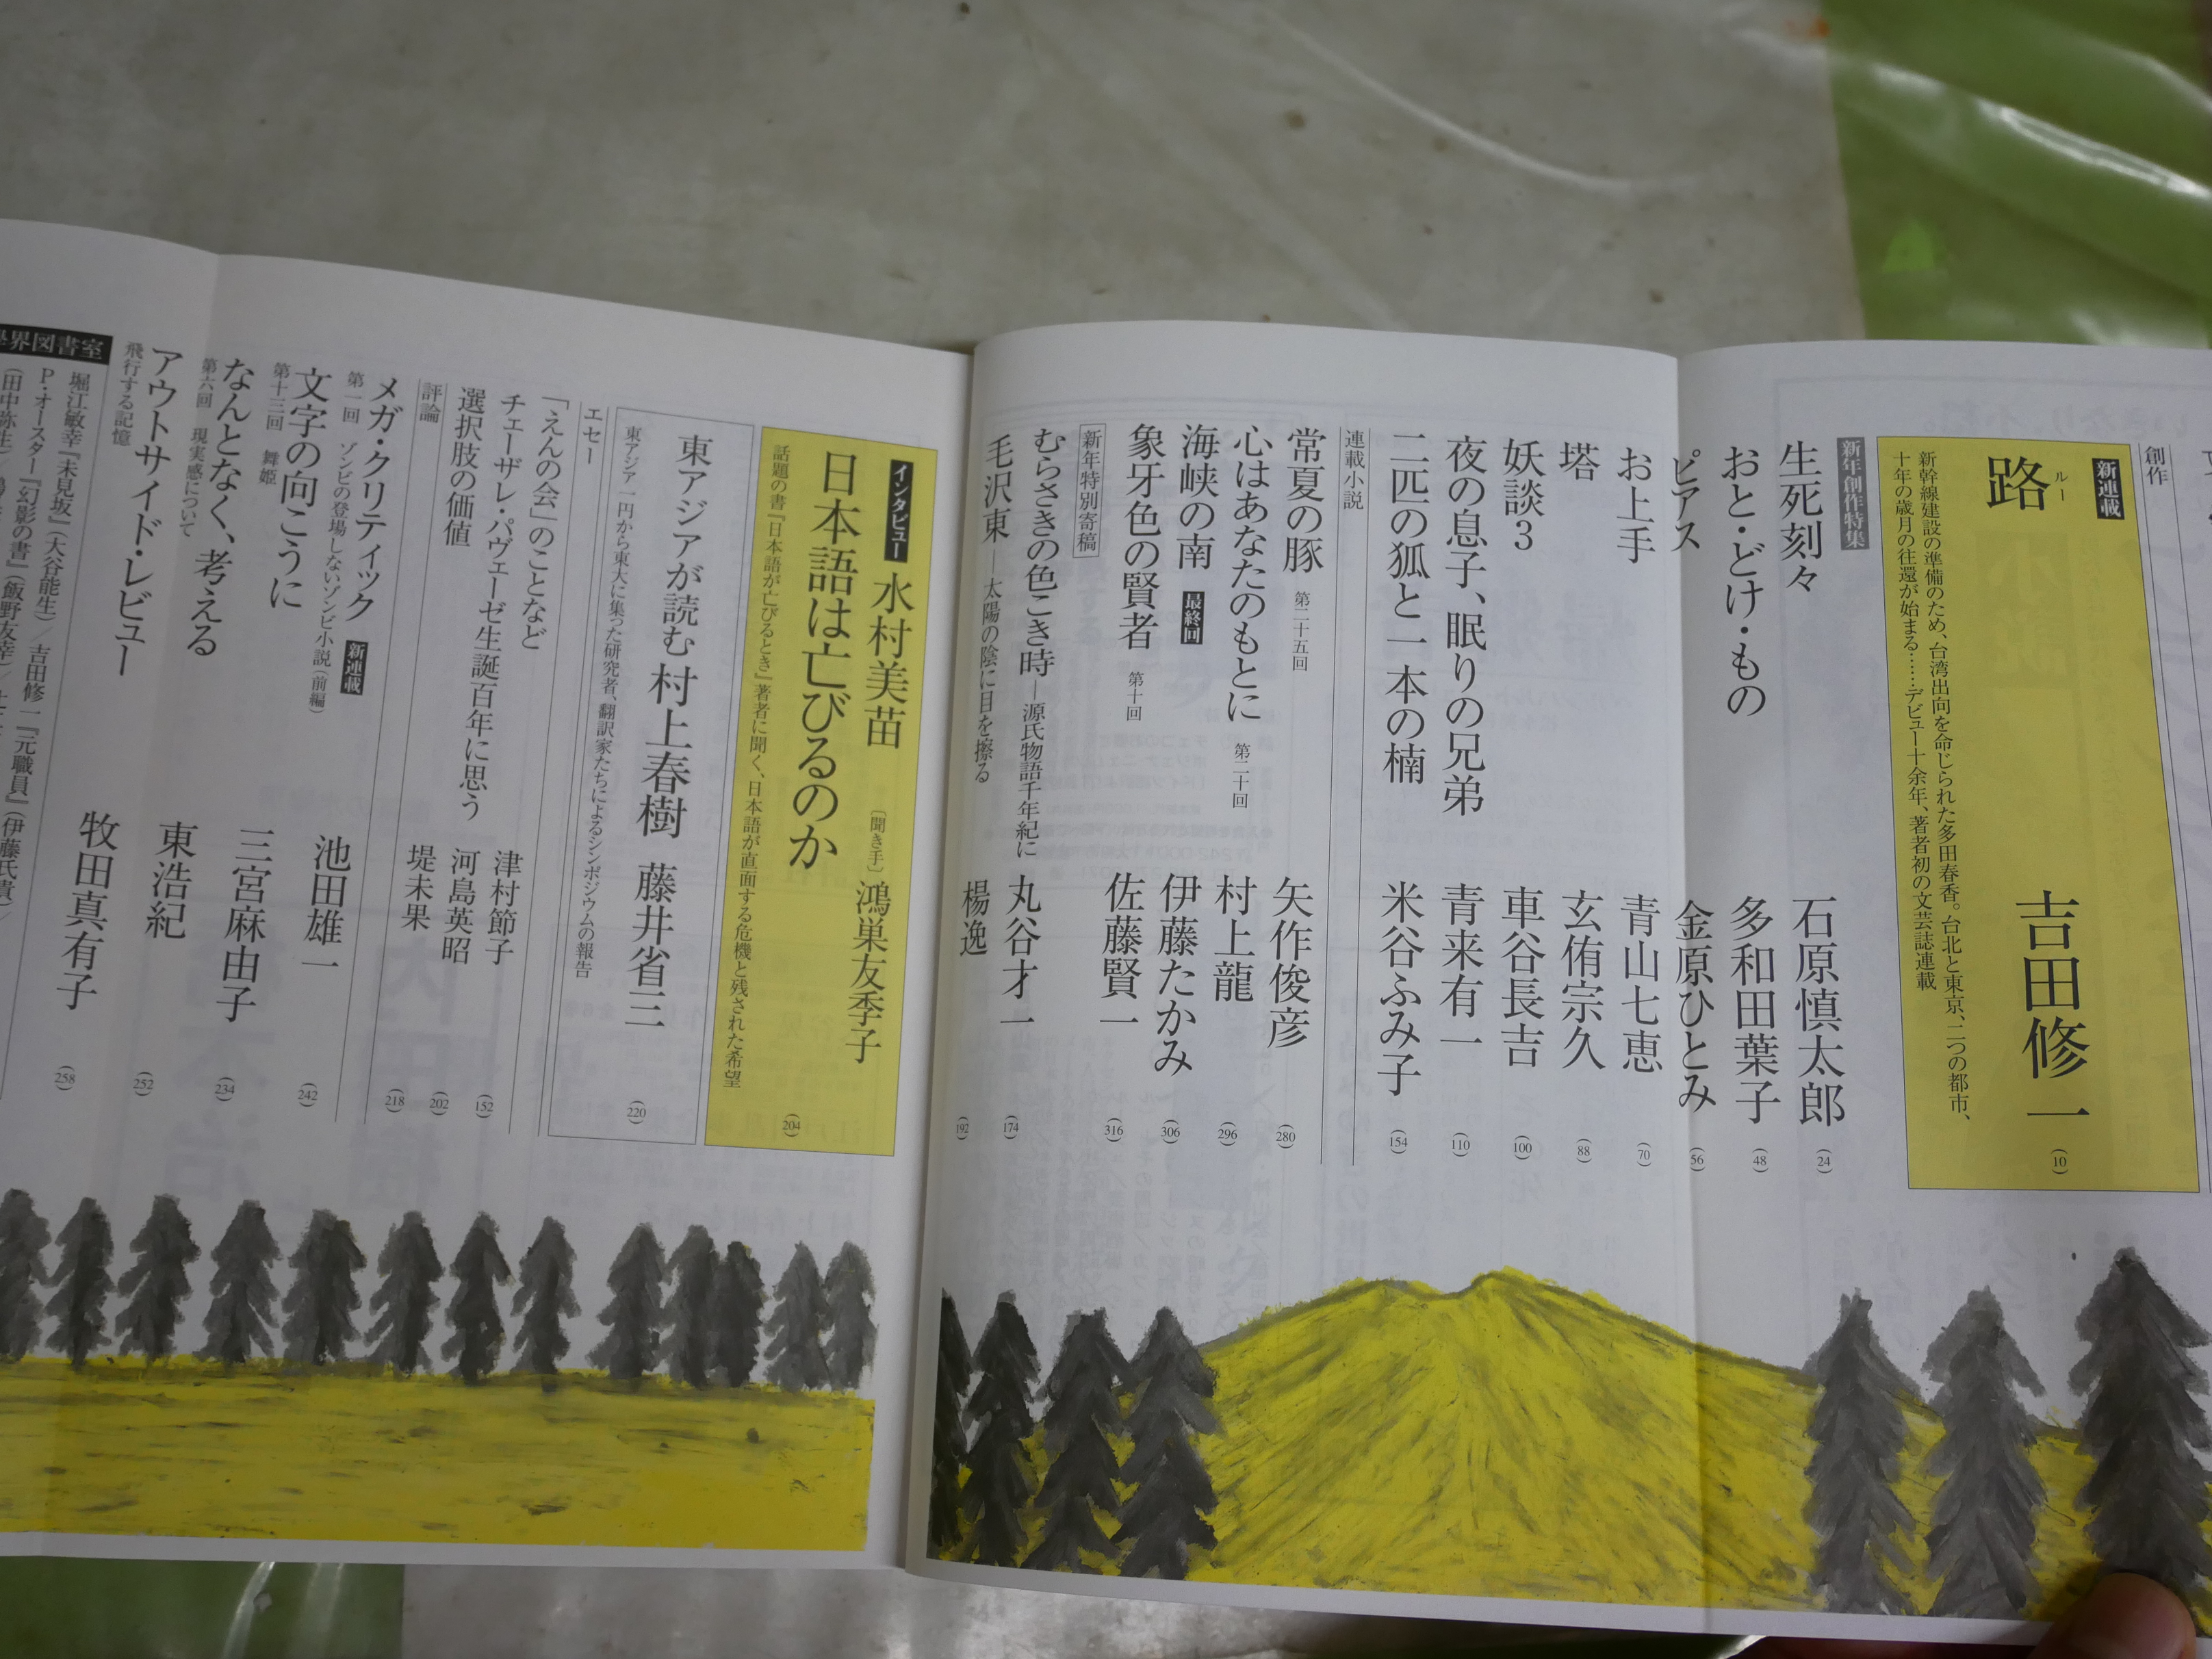 創作
新連載
路
ルー
吉田修一
(10)
新幹線建設の準備のため、台湾出向を命じられた多田春香。台北と東京、二つの都市、
十年の歳月の往還が始まる……デビュー十余年、著者初の文芸誌連載
新年創作特集
生死刻々 石原慎太郎 (24)
おと・どけ・もの 多和田葉子 (48)
ピアス 金原ひとみ (56)
お上手 青山七恵 (70)
塔 玄侑宗久 (88)
妖談3 車谷長吉 (100)
夜の息子、眠りの兄弟 青来有一 (110)
二匹の狐と一本の楠 米谷ふみ子 (154)
連載小説
常夏の豚 第二十五回 矢作俊彦 (280)
心はあなたのもとに 第二十回 村上龍 (296)
海峡の南 最終回 伊藤たかみ (306)
象牙色の賢者 第十回 佐藤賢一 (316)
新年特別寄稿
むらさきの色こき時―源氏物語千年紀に 丸谷才一 (174)
毛沢東―太陽の陰に目を擦る 楊逸 (192)
インタビュー 水村美苗 〔聞き手〕鴻巣友季子
日本語は亡びるのか (204)
話題の書『日本語が亡びるとき』著者に聞く、日本語が直面する危機と残された希望
東アジアが読む村上春樹 藤井省三 (220)
東アジア一円から東大に集った研究者、翻訳家たちによるシンポジウムの報告
エセー
「えんの会」のことなど 津村節子 (152)
チェーザレ・パヴェーゼ生誕百年に思う 河島英昭 (202)
選択肢の価値 堤未果 (218)
評論
メガ・クリティック 新連載 池田雄一 (242)
第一回 ゾンビの登場しないゾンビ小説(前編)
文字の向こうに 三宮麻由子 (234)
第十三回 舞姫
なんとなく、考える 東浩紀 (252)
第六回 現実感について
アウトサイド・レビュー 牧田真有子 (258)
飛行する記憶
學界図書室
堀江敏幸『未見坂』(大谷能生)/吉田修一『元職員』(伊藤氏貴)/
P・オースター『幻影の書』(飯野友幸)/
(田中弥生)/